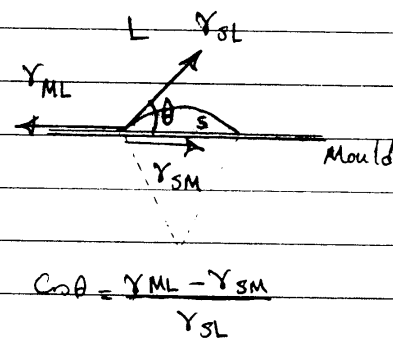 L γSL
γML
θ S
γSM
Mould
Cosθ = γML - γSM
γSL